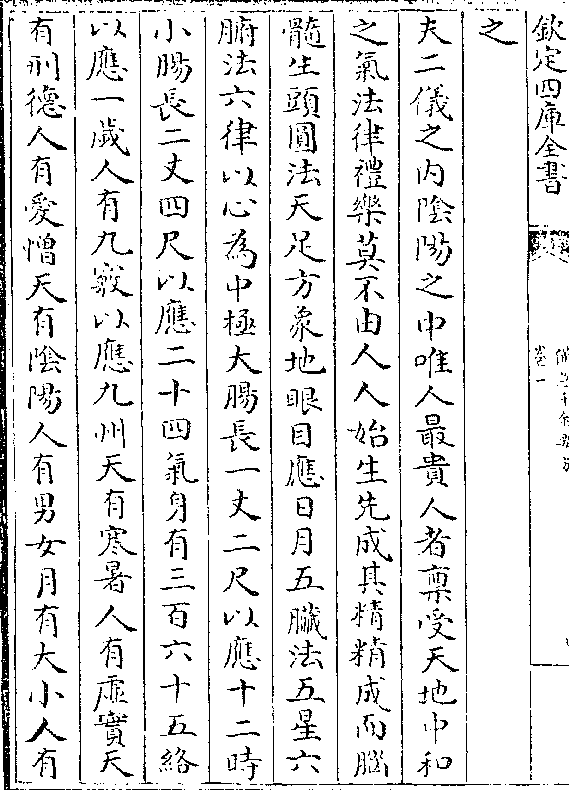 欽定四庫全書
卷一
之
夫二儀之内陰陽之中唯人最貴人者禀受天地中和
之氣法律禮樂莫不由人人始生先成其精精成而腦
髓生頭圓法天足方象地眼目應日月五臟法五星六
腑法六律以心為中極大腸長一丈二尺以應十二時
小腸長二丈四尺以應二十四氣身有三百六十五絡
以應一歲人有九竅以應九州天有寒暑人有虛實天
有刑德人有愛憎天有陰陽人有男女月有大小人有